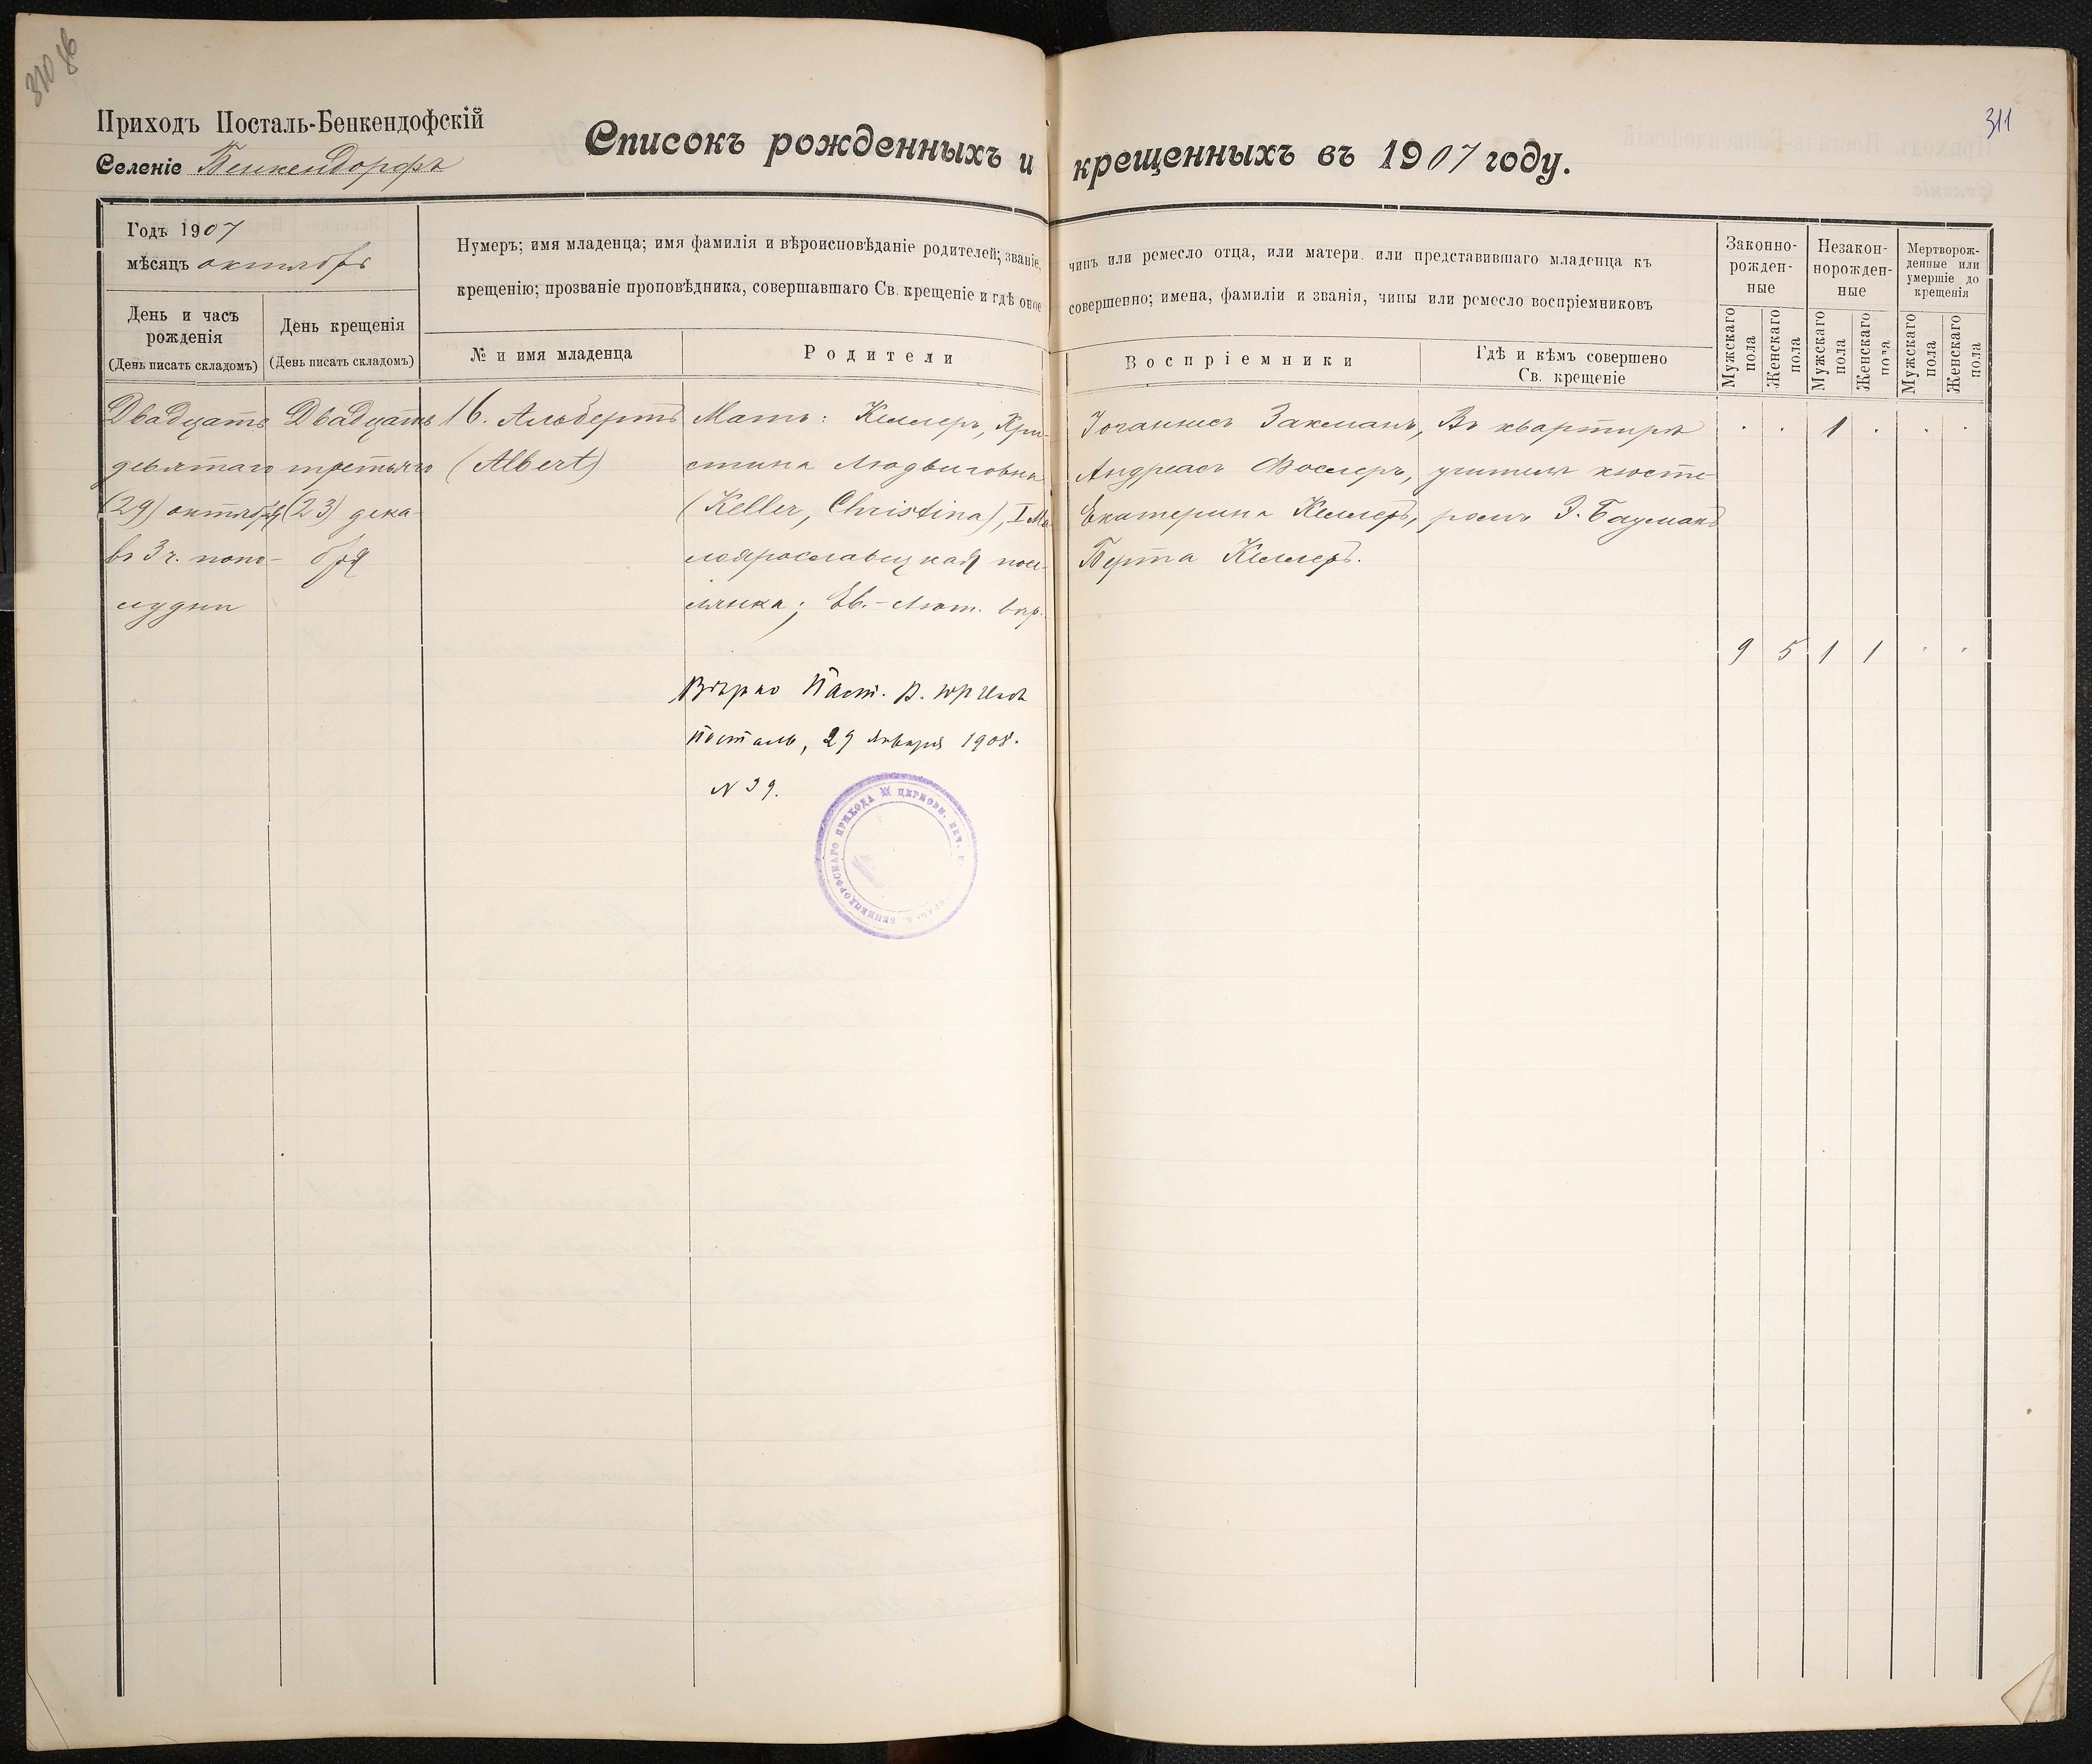 310 об
311
Приходъ Посталь-Бенкендофскій
Селеніе Бенкендорфъ
Списокъ рожденныхъ и крещенныхъ въ 1907 году.
Годъ 1907
мѣсяцъ октябрь
Нумеръ; имя младенца; имя фамилія и вѣроисповѣданіе родителей; званіе, чинъ или ремесло отца, или матери. или представившаго младенца къ
крещенію; прозваніе проповѣдника, совершавшаго Св. крещеніе и гдѣ оное совершенно; имена, фамиліи и званія, чины или ремесло воспріемниковъ
Законно-
рожден-
ные
Незакон-
норожден-
ные
Мертворож-
денные или
умершіе до
крещенія
День и часъ
рожденія
(День писать складомъ)
День крещенія
(День писать складомъ)
№ и имя младенца
Родители
Воспріемники
Гдѣ и кѣмъ совершено
Св. крещеніе
Мужскаго
пола
Женскаго
пола
Мужскаго
пола
Женскаго
пола
Мужскаго
пола
Женскаго
пола
Двадцать
девятаго
(29) октября
въ 3 ч. попо-
лудни
Двадцать
третьяго
(23) дека-
бря
16. Альбертъ
(Albert)
Мать: Келлеръ, Кри-
стина Людвиговна
(Keller, Christina), I Ма
лоярославецкая посе-
лянка; Ев.-Лют. вѣр.
Іоганнесъ Закманъ,
Андреасъ Фослеръ,
Екатерина Келлеръ,
Берта Келлеръ.
Въ квартирѣ
учителя кюсте-
ромъ З. Бауманъ
. . 1 . . .
9 5 1 1 . .
Вѣрно Паст.
Посталь, 29 января 1908.
N 39.
ЦЕРКОВН. ПЕЧ. БЕНКЕНДОРФСКАГО ПРИХОДА